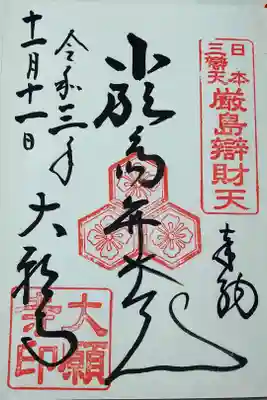 日本
三辯天
厳島辯財天
奉納
大弁才天
令和三年
十一月十一日
大願寺
大願
寺印